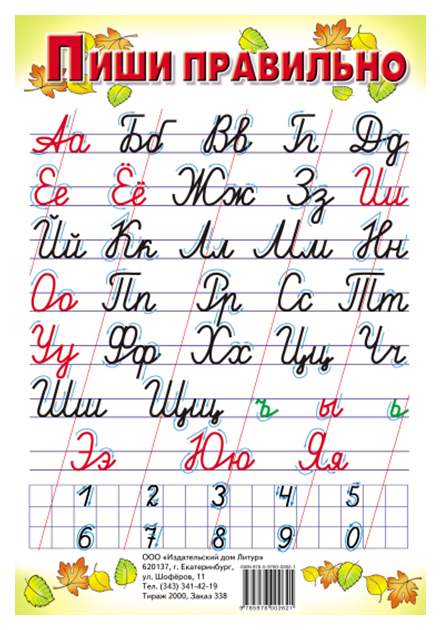 Пиши правильно
Аа Бб Вв Гг Дд
Ее Ёё Жж Зз Ии
Йй Кк Лл Мм Нн
Оо Пп Рр Сс Тт
Уу Фф Хх Цц Чч
Шш Щщ ъ ы ь
Ээ Юю Яя
1 2 3 4 5
6 7 8 9 0
ООО «Издательский дом Литур»
620137, г. Екатеринбург,
ул. Шофёров, 11
Тел. (343) 341-42-19
Тираж 2000, Заказ 338
9 785978 002621